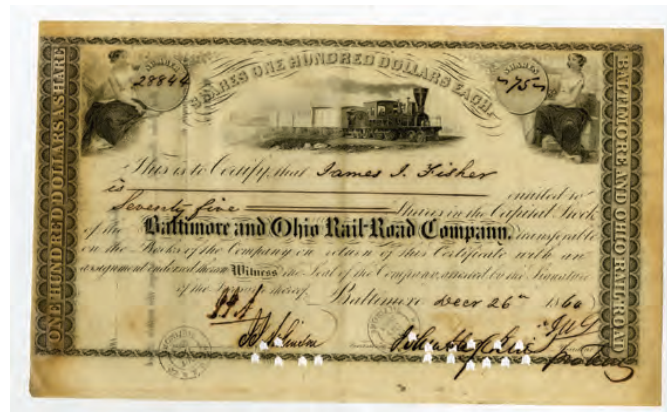 SHARES
28844
SHARES ONE HUNDRED DOLLARS EACH.
SHARES
75
ONE HUNDRED DOLLARS A SHARE
BALTIMORE AND OHIO RAILROAD
This is to Certify, that James I. Fisher
is entitled to
Seventy five Shares in the Capital Stock
of the Baltimore and Ohio Rail-Road Company, transferable
on the Books of the Company on return of this Certificate with an
assignment endorsed thereon Witness the Seal of the Company, attested by the Signature
of the thereof. Baltimore Decr 26th 1860